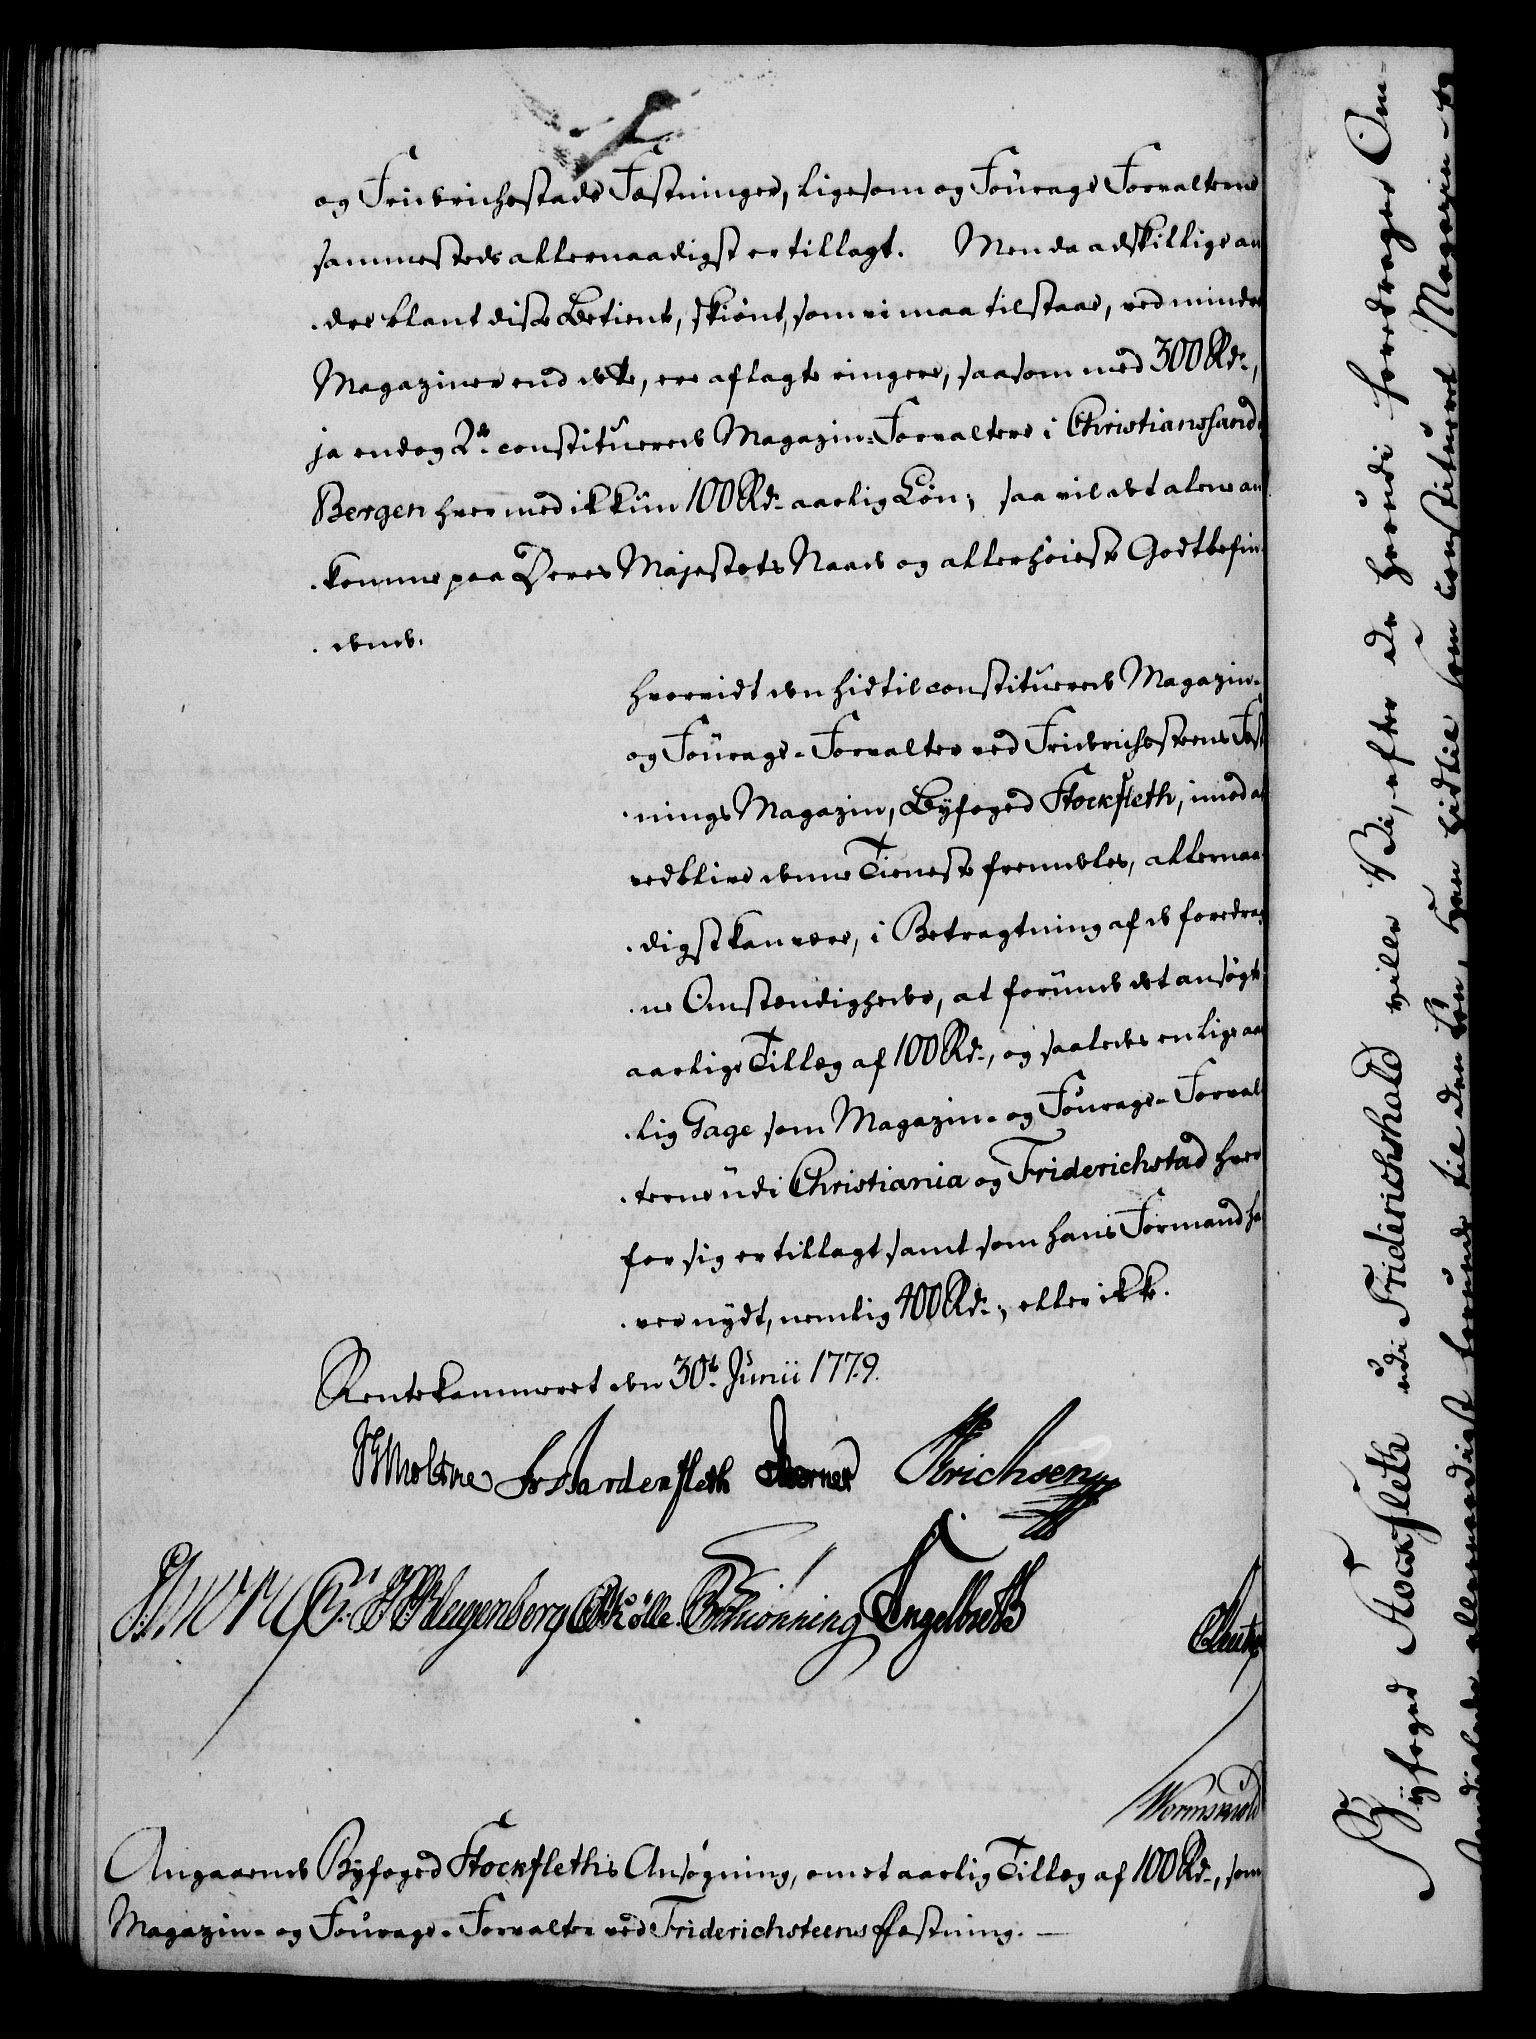 og Fridrichstads Fæstninger, ligesom og Fourage Forvalterne
sammesteds allernaadigst er tillagt. Men da adskillige an
der blant disse Betiente, skiönt, som vi maa tilstaae, ved mindre
Magaziner end dette, ere aflagte ringere, saasom med 300 Rd.,
ja endog 2de constituerede Magazin-Forvaltere i Christianssand
Bergen hver med ikkun 100 Rd. aarlig Lön; saa vil det alene an
komme paa Deres Majestets Naade og allerhöieste Godtbefin
dende.
Hvorvidt den hidtil constituerede Magazin-
og Fourage-Forvalter ved Friderichsteens Fæst
nings Magazin, Byfoged Stockfleth, imod at
vedblive denne Tieneste fremdeles, allernaa
digst kan være, i Betragtning af de foredrag
ne Omstændigheder, at forunde det ansögte
aarlige Tillæg af 100 Rd., og saaledes en lige aar
lig Gage som Magazin- og Fourage-Forval
terne udi Christiania og Friderichstad hver
for sig er tillagt samt som hans Formand ha
ver nydt, nemlig 400 Rd., eller ikke.
Rentekammeret den 30te Junii 1779.
Moltke Fr Aardenfleth Erichsen
Klagenberg Kölle Schiönning Engelbreth
Wormskiold
Angaaende Byfoged Stockfleths Ansögning, om et aarlig Tillæg af 100 Rd., som
Magazin- og Fourage-Forvalter ved Friderichsteens Fæstning.
Byfoged Stockfleth udi Friderichshald ville Vi, efter de herudi foredragne Om-
stændigheder allernaadigst forunde til den Lön, han hidtil som constitueret Magazin- og